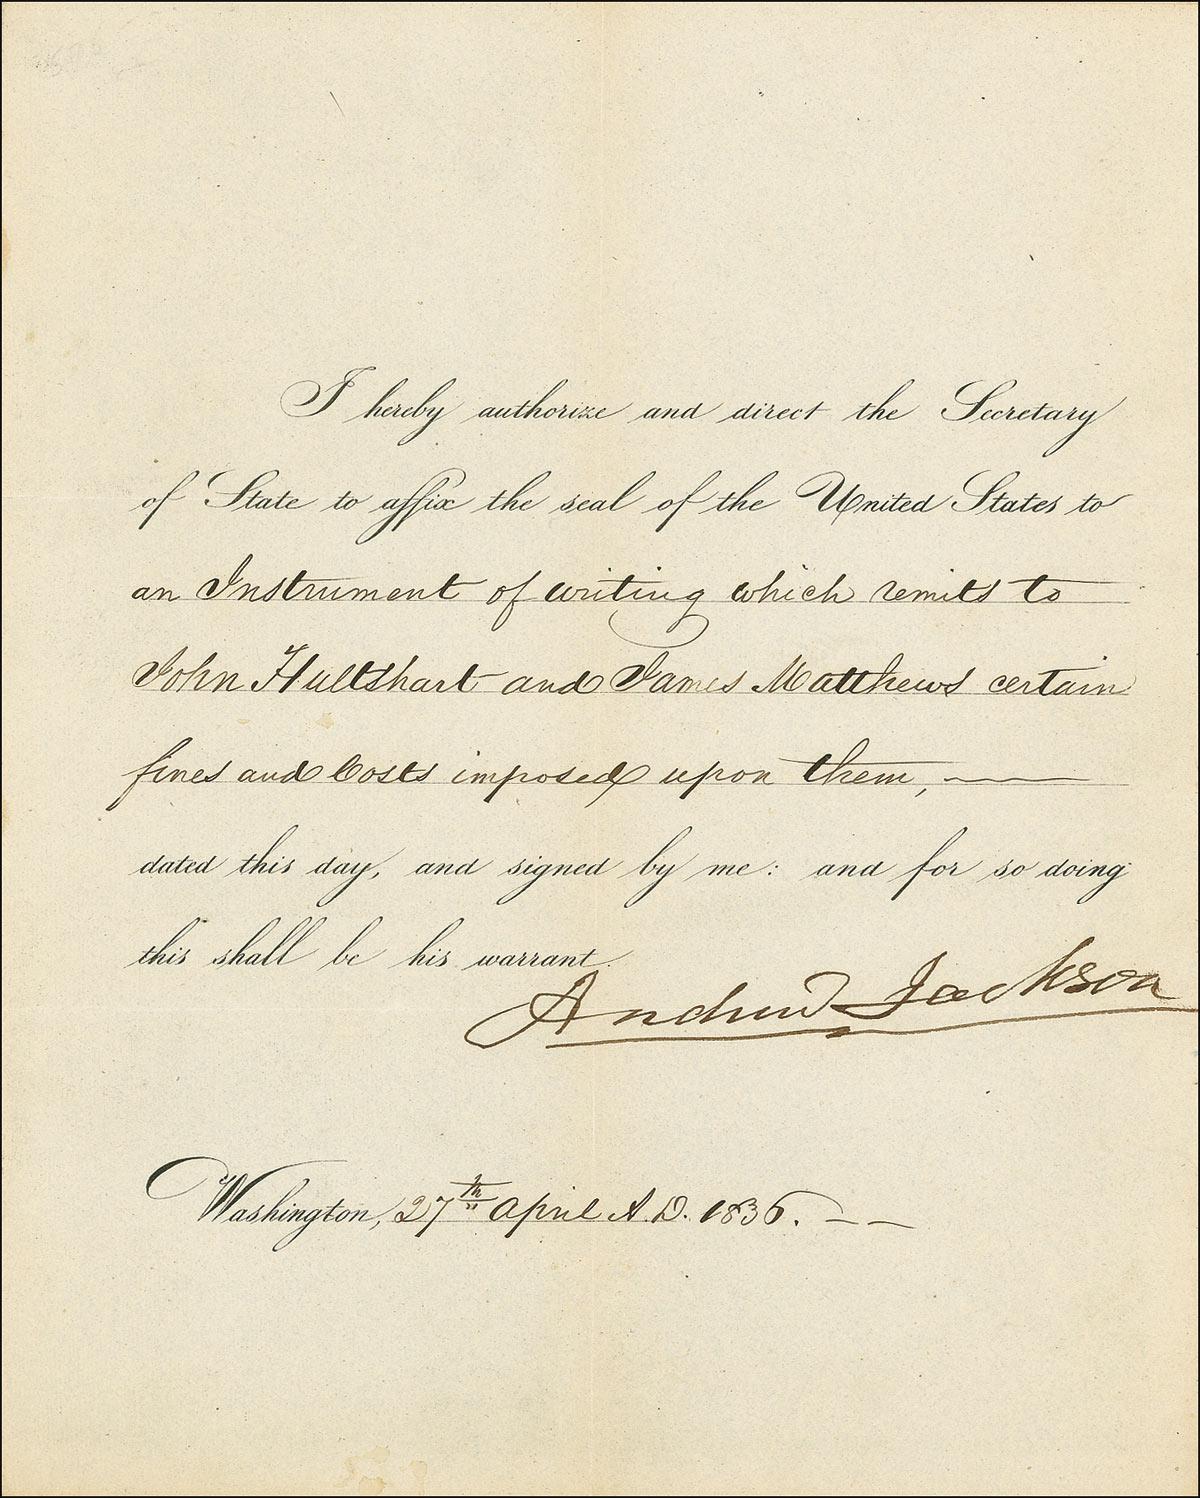 I hereby authorize and direct the Secretary
of State to affix the seal of the United States to
an Instrument of writing which remits to
John Hultshart and James Matthews certain
fines and Costs imposed upon them,
dated this day, and signed by me: and for so doing
this shall be his warrant.
Andrew Jackson
Washington, 27th April A.D. 1836.